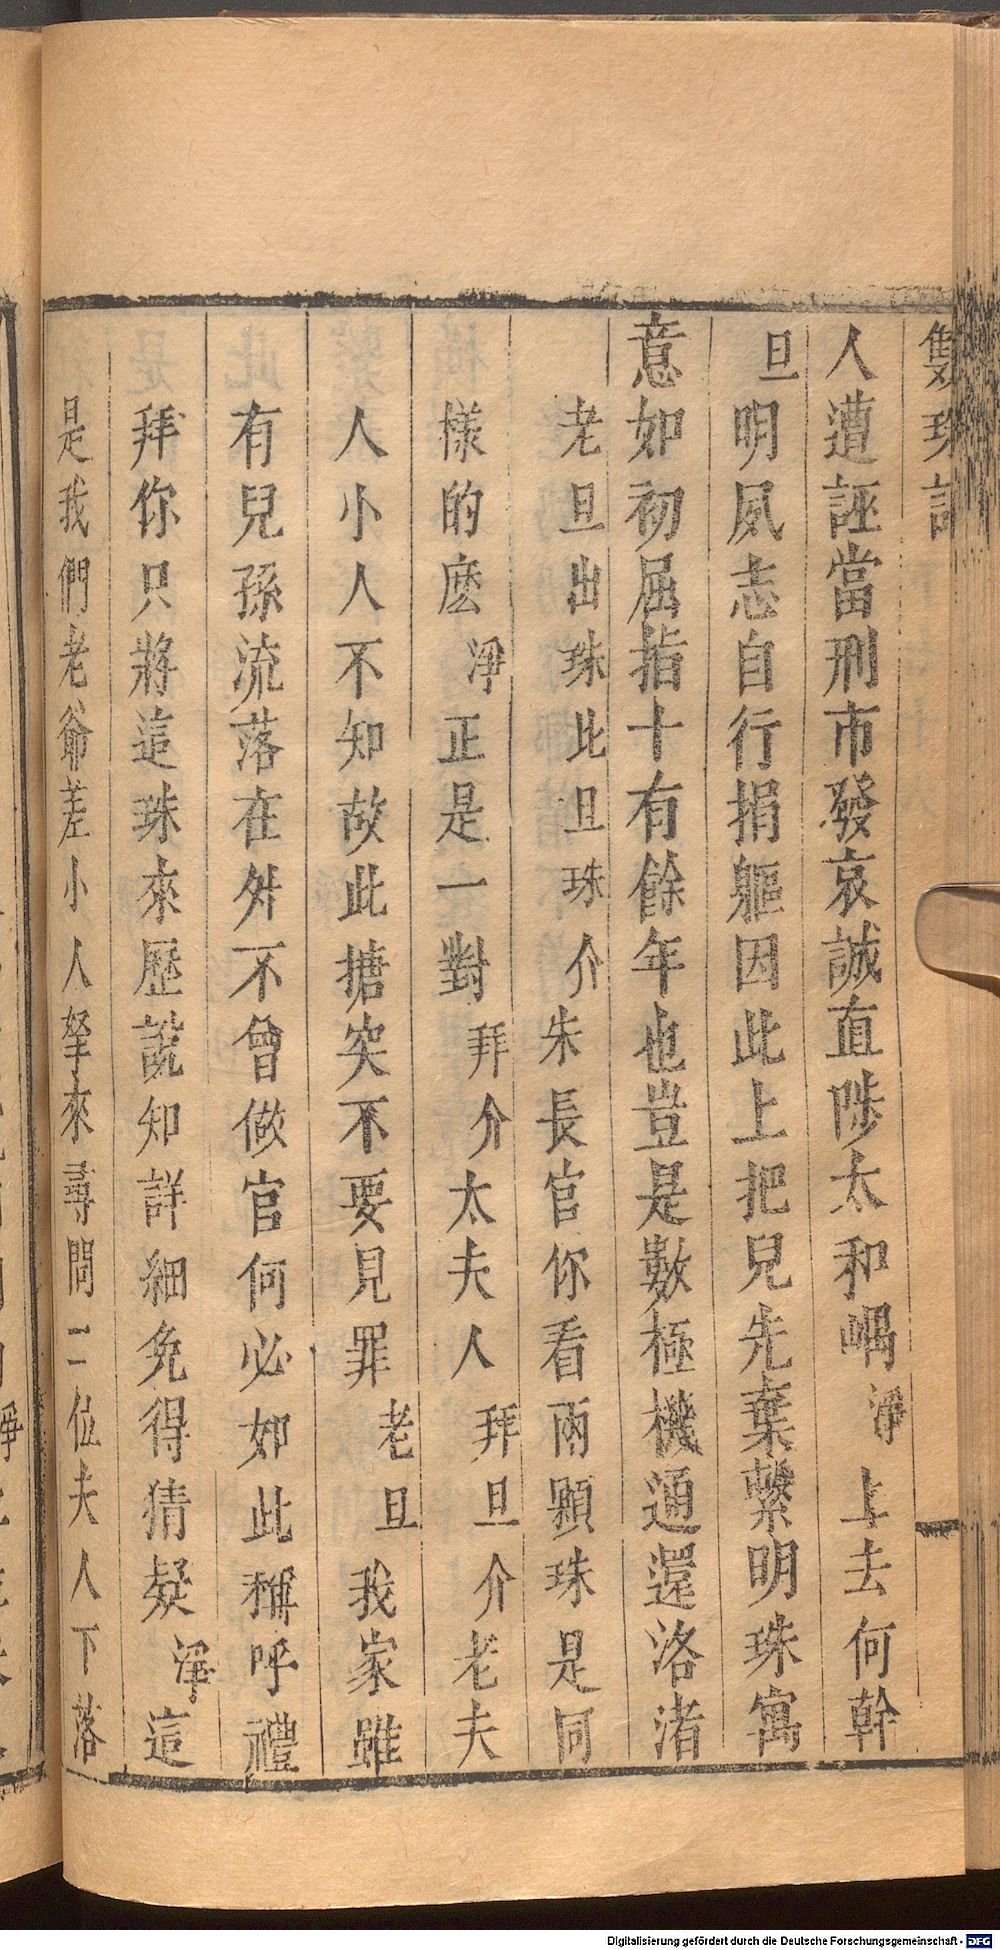 雙珠記
人遭誣當刑市發哀誠直陟太和嵎淨上去何幹
旦明夙志自行捐軀因此上把兒先棄繫明珠寓
意如初屈指十有餘年也豈是數極機通還洛渚
老旦出珠比旦珠介朱長官你看兩顆珠是同
樣的麽淨正是一對拜介太夫人拜旦介老夫
人小人不知故此搪突不要見罪老旦我家雖
有兒孫流落在外不曾做官何必如此稱呼禮
拜你只將這珠來歷說知詳細免得猜疑淨這
是我們老爺差小人拏來尋問二位夫人下落
Digitalisierung gefördert durch die Deutsche Forschungsgemeinschaft - DFG